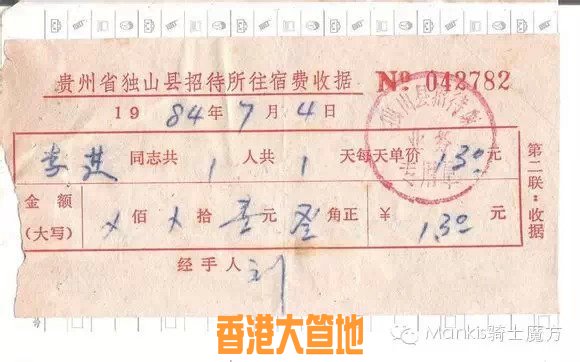 贵州省独山县招待所住宿费收据 No 042782
1984年7月4日
同志共1人共1天每天单价1.30元
金额(大写) ×佰×拾壹元叁角正 ¥1.30元
第二联:收据
独山县招待所
业务
专用章
经手人 刘
香港大笪地
Mankis骑士魔方